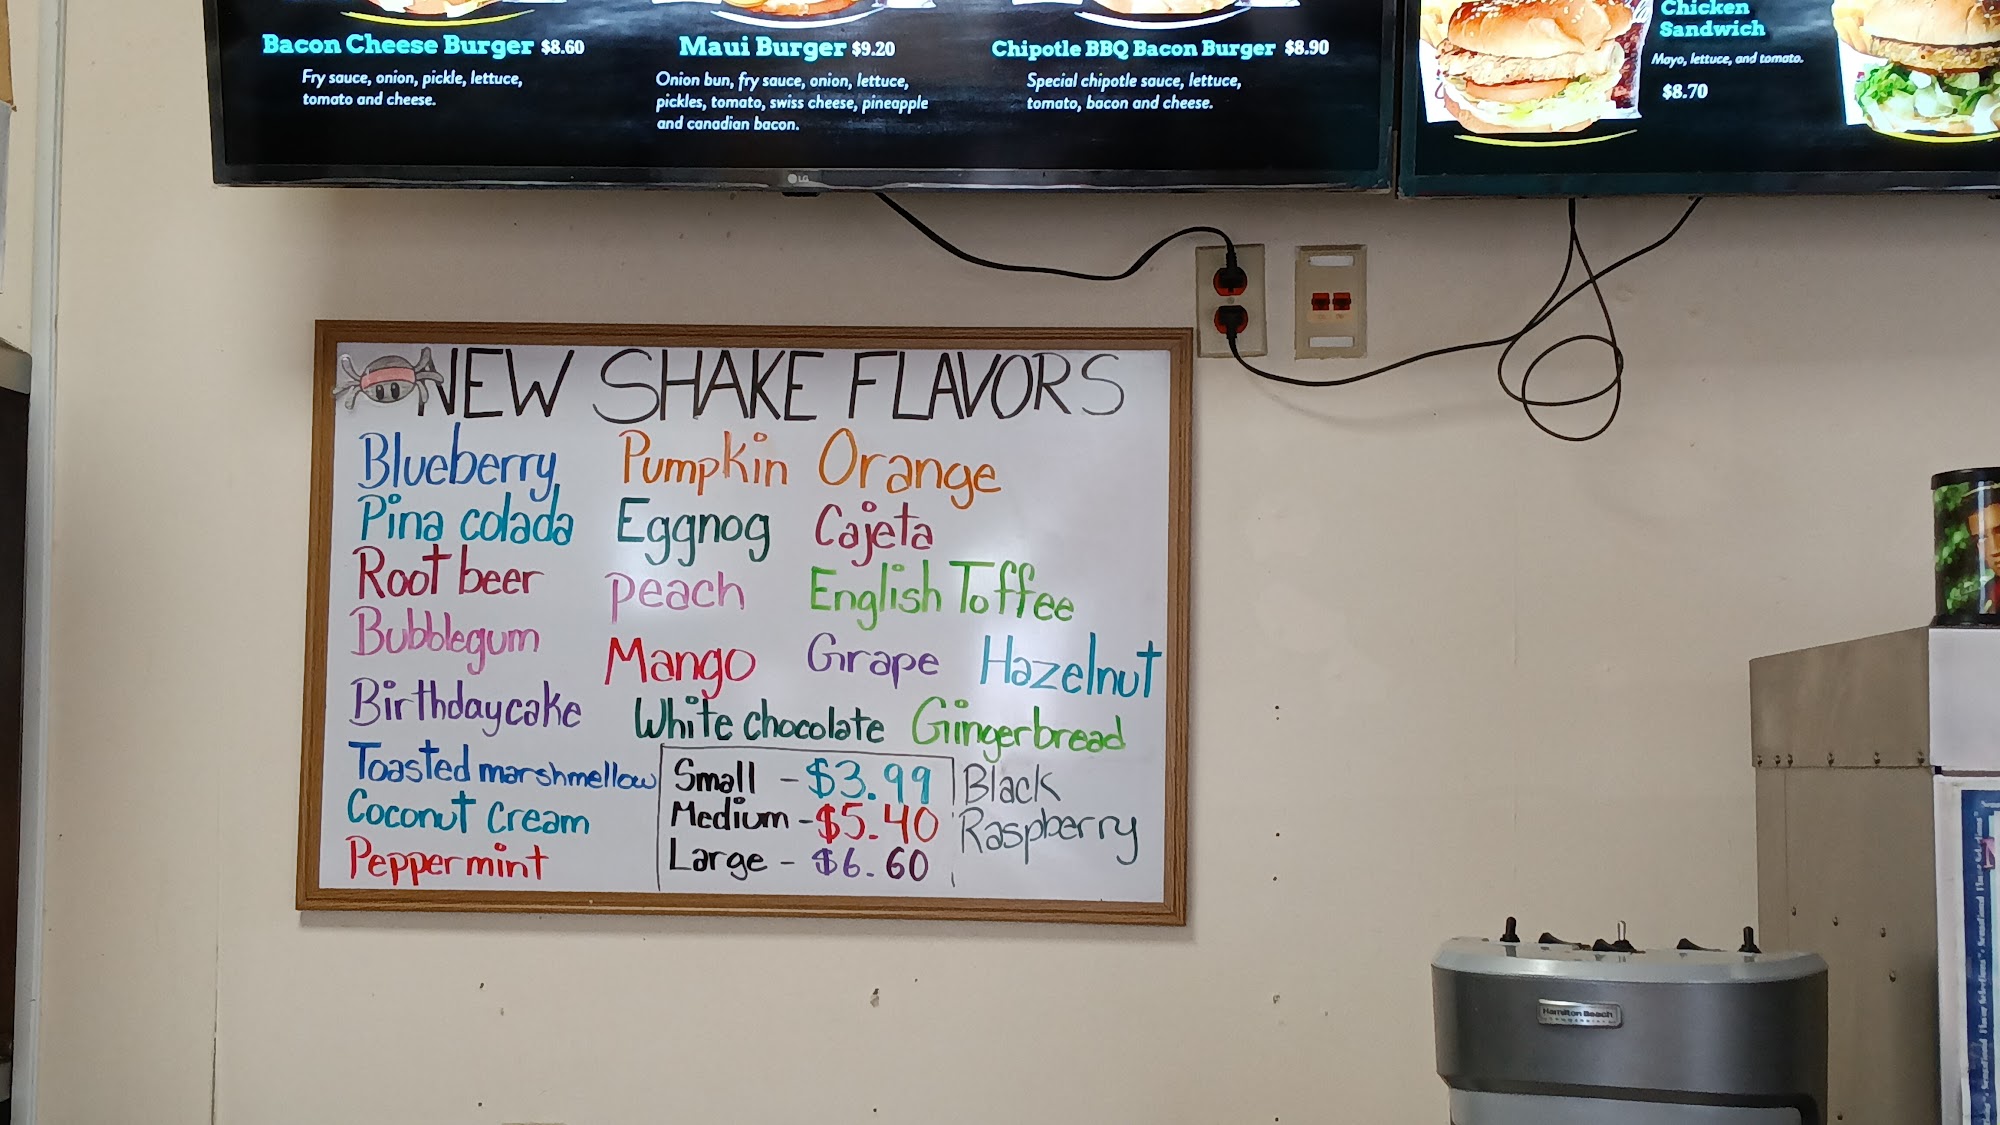 Bacon Cheese Burger $8.60
Fry sauce, onion, pickle, lettuce,
tomato and cheese.
Maui Burger $9.20
Onion bun, fry sauce, onion, lettuce,
pickles, tomato, swiss cheese, pineapple
and canadian bacon.
Chipotle BBQ Bacon Burger $8.90
Special chipotle sauce, lettuce,
tomato, bacon and cheese.
Chicken
Sandwich
Mayo, lettuce, and tomato.
$8.70
LG
NEW SHAKE FLAVORS
Blueberry Pumpkin Orange
Pina colada Eggnog Cajeta
Root beer peach English Toffee
Bubblegum Mango Grape Hazelnut
Birthdaycake White chocolate Gingerbread
Toasted marshmellow
Coconut Cream
Peppermint
Small - $3.99
Medium - $5.40
Large - $6.60
Black
Raspberry
Hamilton Beach